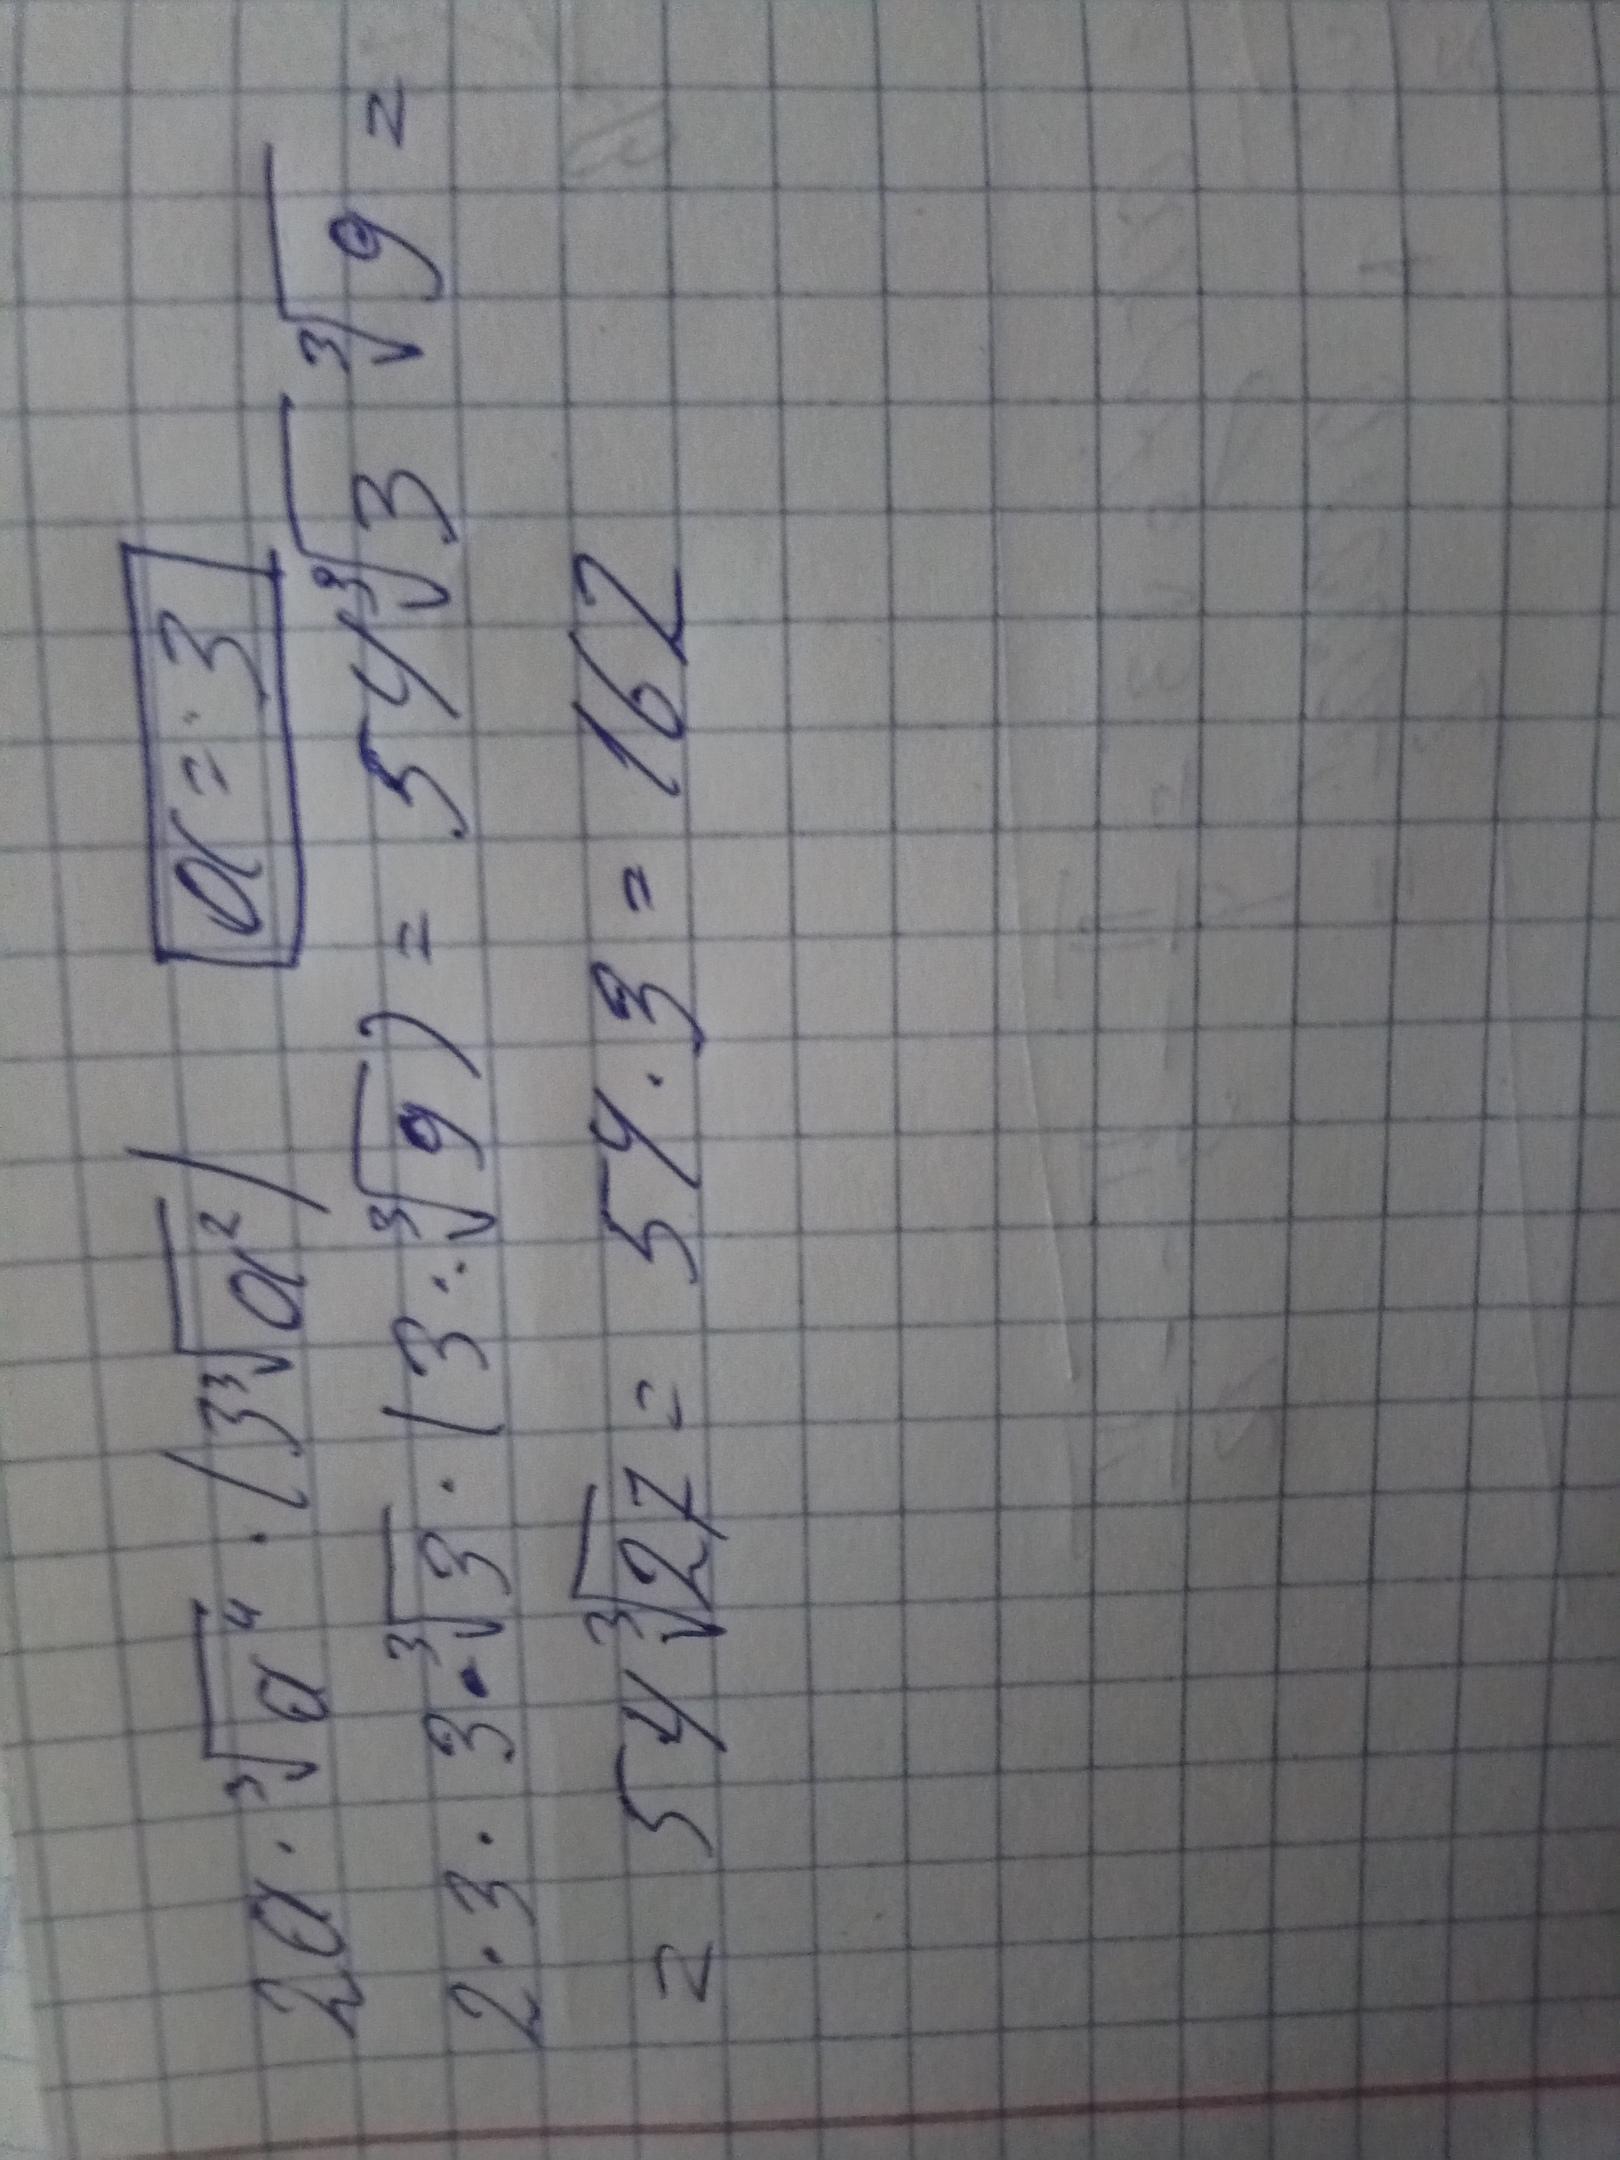 2a · ∛a⁴ · (3∛a²) a = 3
2 · 3 · 3 · ∛3 · (3 · ∛9) = 54∛3 ∛9 =
= 54∛27 = 54 · 3 = 162